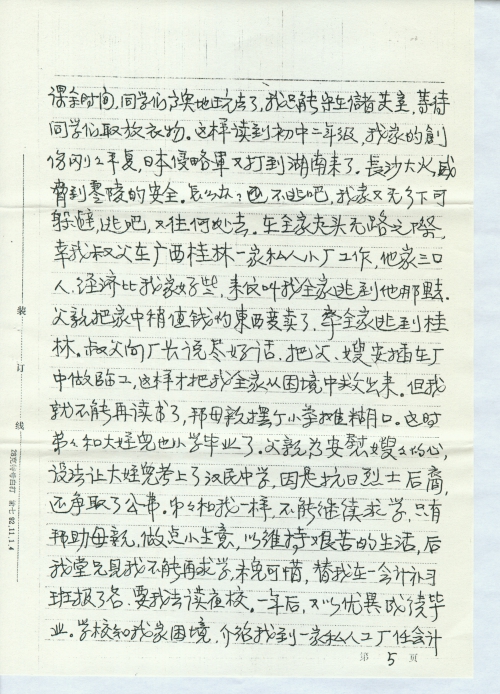 课余时间,同学们高兴地玩去了,我只能守在宿舍里,等待
同学们取放衣物。这样读到初中二年级,我家的創
伤刚刚平复,日本侵略軍又打到湖南来了。長沙大火,威
脅到零陵的安全。怎么办?逃不逃吧,我家又无乡下可
躲避,逃吧,又往何处去。在全家走头无路之際,
幸我叔父在广西桂林一家私人小厂工作,他家三口
人.经济比我家好些,来信叫我全家逃到他那里.
父親把家中稍值钱的東西变卖了.牽全家逃到桂
林.叔父向厂长说尽好话.把父、嫂安插在厂
中做临工,这样才把我全家从困境中救出来。但我
就不能再读书了,帮母親摆个小学摊糊口。这时
弟弟和大姪兒也小学毕业了。父親为安慰嫂嫂的心,
设法让大姪兒考上了汉民中学,因是抗日烈士后裔,
还争取了公費。弟弟和我一样,不能继续求学,只有
帮助母親,做点小生意,以维持艰苦的生活,后
我堂兄見我不能再求学,未免可惜,替我在一会计补习
班报了名.要我去读夜校。一年后,又以优異成绩毕
业。学校知我家困境,介绍我到一家私人工厂任会计
第 5 页
装 订 线